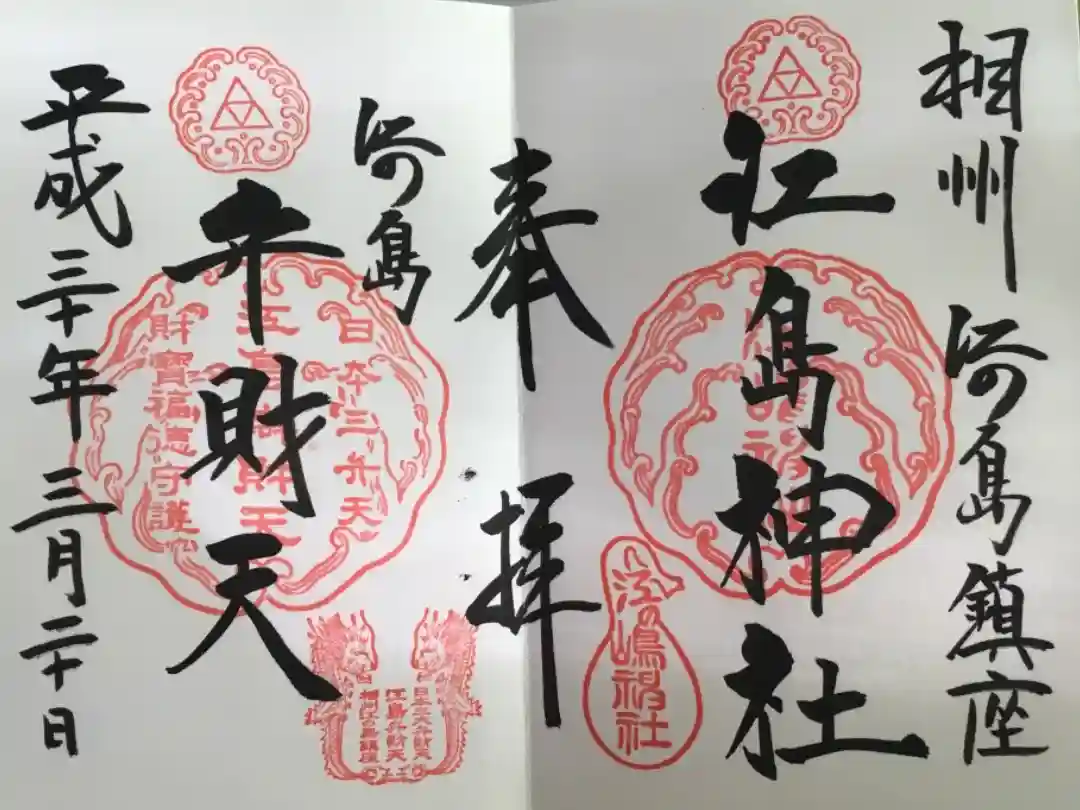 相州 江の島鎮座
江島神社
奉拝
江の島
弁財天
平成三十年三月二十日
日本三弁天
財寶福徳守護
江の嶋神社
日本三大弁財天
江島弁財天
相州江の島鎮座